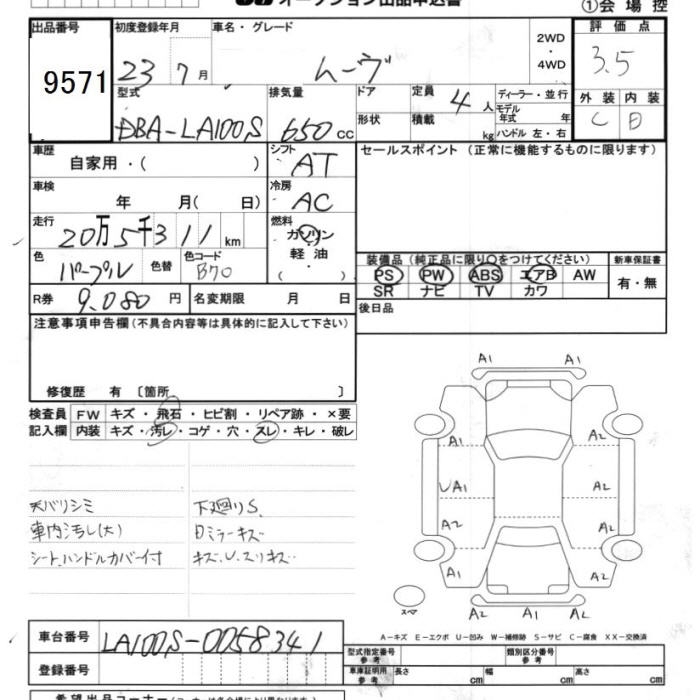 ①会場控
出品番号
9571
初度登録年月
23 7月
車名・グレード
ムーヴ
2WD
・
4WD
評価点
3.5
外装 内装
C B
型式
DBA-LA100S
排気量
650cc
ドア
形状
定員
4人
積載
kg
ディーラー・並行
モデル
年式 年
ハンドル 左・右
車歴
自家用・( )
シフト
AT
セールスポイント (正常に機能するものに限ります)
車検
年 月( 日)
冷房
AC
走行
20万5千311km
燃料
ガソリン
軽油
・( )
色
パープル
色替
色コード
B70
装備品(純正品に限り○をつけてください)
PS PW ABS エアB AW
SR ナビ TV カワ
新車保証書
有・無
R券
9.080円
名変期限 月 日
後日品
注意事項申告欄(不具合内容等は具体的に記入して下さい)
修復歴 有 〔箇所 〕
検査員 FW キズ・飛石・ヒビ割・リペア跡・×要
記入欄 内装 キズ・汚レ・コゲ・穴・スレ・キレ・破レ
天バリシミ
車内汚し(大)
シート、ハンドルカバー付
下廻りS.
日ミラーキズ
キズ.U.スリキズ.
A1 A1
A1 A2
UA1 A2
A2 A2
A1 A2
A2 A1 A2
スペア
A-キズ E-エクボ U-凹み W-補修跡 S-サビ C-腐食 XX-交換済
車台番号
LA100S-0058341
登録番号
型式指定番号
参考
類別区分番号
参考
車庫証明用
参考
長さ cm 幅 cm 高さ cm